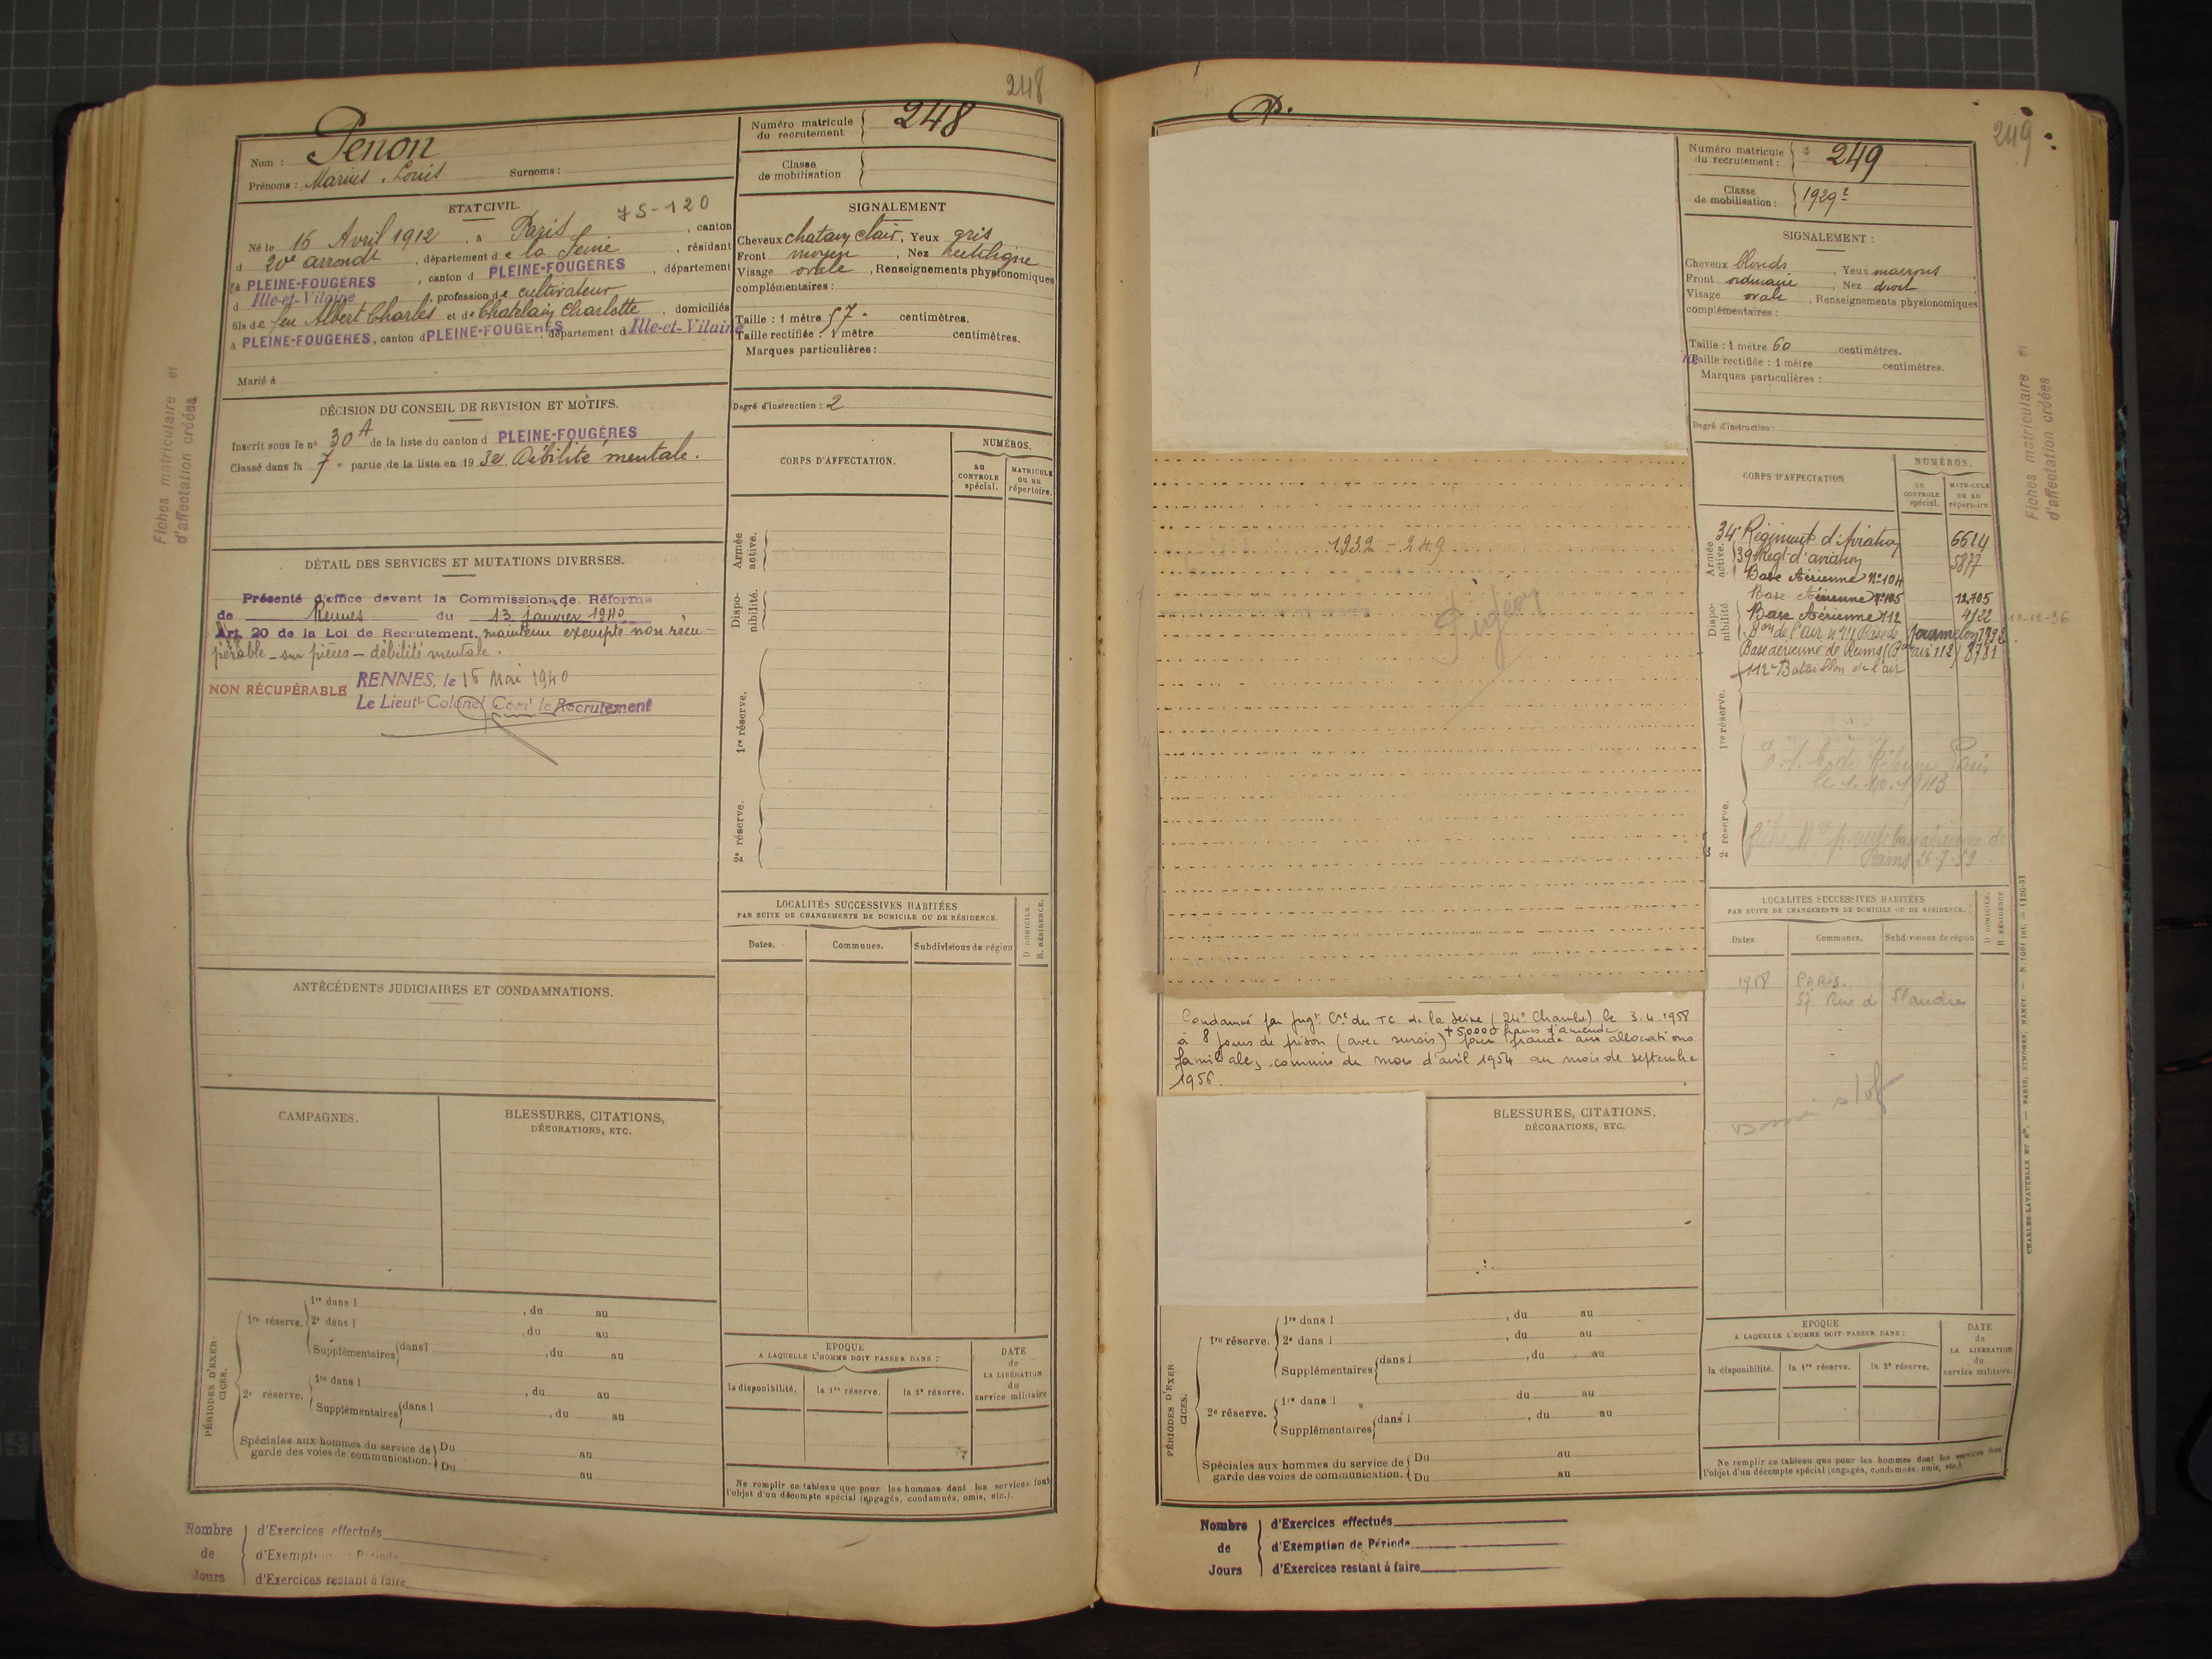 248
Nom : Penon
Prénoms : Marius, Louis Surnoms :
Numéro matricule du recrutement 248
Classe de mobilisation
ETAT CIVIL.
75-120
Né le 16 Avril 1912, à Paris, canton
d 20e arrondt, département de la Seine, résidant
à PLEINE-FOUGÈRES, canton d PLEINE-FOUGÈRES, département
d Ille-et-Vilaine, profession de cultivateur
fils de feu Albert Charles et de Chatelain Charlotte, domiciliés
à PLEINE-FOUGÈRES, canton d PLEINE-FOUGÈRES, département d Ille-et-Vilaine
Marié à
SIGNALEMENT
Cheveux chatain clair, Yeux gris
Front moyen, Nez rectiligne
Visage ovale, Renseignements physionomiques
complémentaires :
Taille : 1 mètre 57 centimètres.
Taille rectifiée : 1 mètre centimètres.
Marques particulières :
Degré d'instruction : 2
DÉCISION DU CONSEIL DE REVISION ET MOTIFS.
Inscrit sous le no 30A de la liste du canton d PLEINE-FOUGÈRES
Classé dans la 7e partie de la liste en 1932 Débilité mentale.
DÉTAIL DES SERVICES ET MUTATIONS DIVERSES.
Présenté d'office devant la Commission de Réforme
de Rennes du 13 janvier 1940
Art. 20 de la Loi de Recrutement. maintenu exempté non récu-
pérable - sur pièces - débilité mentale.
NON RÉCUPÉRABLE RENNES, le 15 Mai 1940
Le Lieut-Colonel Comt le Recrutement
CORPS D'AFFECTATION.
NUMÉROS.
au CONTROLE spécial.
MATRICULE ou au répertoire.
Armée active.
Dispo-nibilité.
1re réserve.
2e réserve.
LOCALITÉS SUCCESSIVES HABITÉES
PAR SUITE DE CHANGEMENTS DE DOMICILE OU DE RÉSIDENCE.
Dates. Communes. Subdivisions de région
D. DOMICILE.
R. RÉSIDENCE.
ANTÉCÉDENTS JUDICIAIRES ET CONDAMNATIONS.
CAMPAGNES.
BLESSURES, CITATIONS,
DÉCORATIONS, ETC.
PÉRIODES D'EXER-CICES.
1re réserve.
1re dans l , du au
2e dans l , du au
Supplémentaires dans l , du au
2e réserve.
1re dans l , du au
Supplémentaires dans l , du au
Spéciales aux hommes du service de garde des voies de communication.
Du au
Du au
EPOQUE
A LAQUELLE L'HOMME DOIT PASSER DANS :
la disponibilité. la 1re réserve. la 2e réserve.
DATE de LA LIBÉRATION du service militaire
Ne remplir ce tableau que pour les hommes dont les services font
l'objet d'un décompte spécial (engagés, condamnés, omis, etc.).
Nombre de Jours
d'Exercices effectués
d'Exemption de Période
d'Exercices restant à faire
Fiches matriculaire et
d'affectation créées
P.
249
Numéro matricule du recrutement : 249
Classe de mobilisation : 1929
SIGNALEMENT :
Cheveux blonds, Yeux marrons
Front ordinaire, Nez droit
Visage ovale, Renseignements physionomiques
complémentaires :
Taille : 1 mètre 60 centimètres.
Taille rectifiée : 1 mètre centimètres.
Marques particulières :
Degré d'instruction :
1932 - 249
Pigeon
CORPS D'AFFECTATION
NUMÉROS.
au CONTROLE spécial.
MATRICULE ou au répertoire.
Armée active.
34e Régiment d'Aviation 6614
39e Régt d'aviation 5877
Base Aérienne No 104
Dispo-nibilité
Base Aérienne No 105 12.705
Base Aérienne 112 4122
Base aérienne de Reims 8781
112e Bataillon de l'air
1re réserve.
2e réserve.
LOCALITÉS SUCCESSIVES HABITÉES
PAR SUITE DE CHANGEMENTS DE DOMICILE OU DE RÉSIDENCE.
Dates. Communes. Subdivisions de région
D. DOMICILE.
R. RÉSIDENCE
1958 PARIS.
57 Rue de Flandres
Condamné par jugt Cre du TC de la Seine (24e Chambre) le 3.4.1958
à 8 jours de prison (avec sursis) + 50000 francs d'amende pour fraude aux allocations
familiales, commis de mois d'avril 1954 au mois de septembre
1956.
BLESSURES, CITATIONS,
DÉCORATIONS, ETC.
PÉRIODES D'EXER CICES.
1re réserve.
1re dans l , du au
2e dans l , du au
Supplémentaires dans l , du au
2e réserve.
1re dans l du au
Supplémentaires dans l , du au
Spéciales aux hommes du service de garde des voies de communication.
Du au
Du au
EPOQUE
A LAQUELLE L'HOMME DOIT PASSER DANS :
la disponibilité. la 1re réserve. la 2e réserve.
DATE de LA LIBÉRATION du service militaire.
Ne remplir ce tableau que pour les hommes dont les services font
l'objet d'un décompte spécial (engagés, condamnés, omis, etc.).
Nombre de Jours
d'Exercices effectués
d'Exemption de Période
d'Exercices restant à faire
Fiches matriculaire et
d'affectation créées